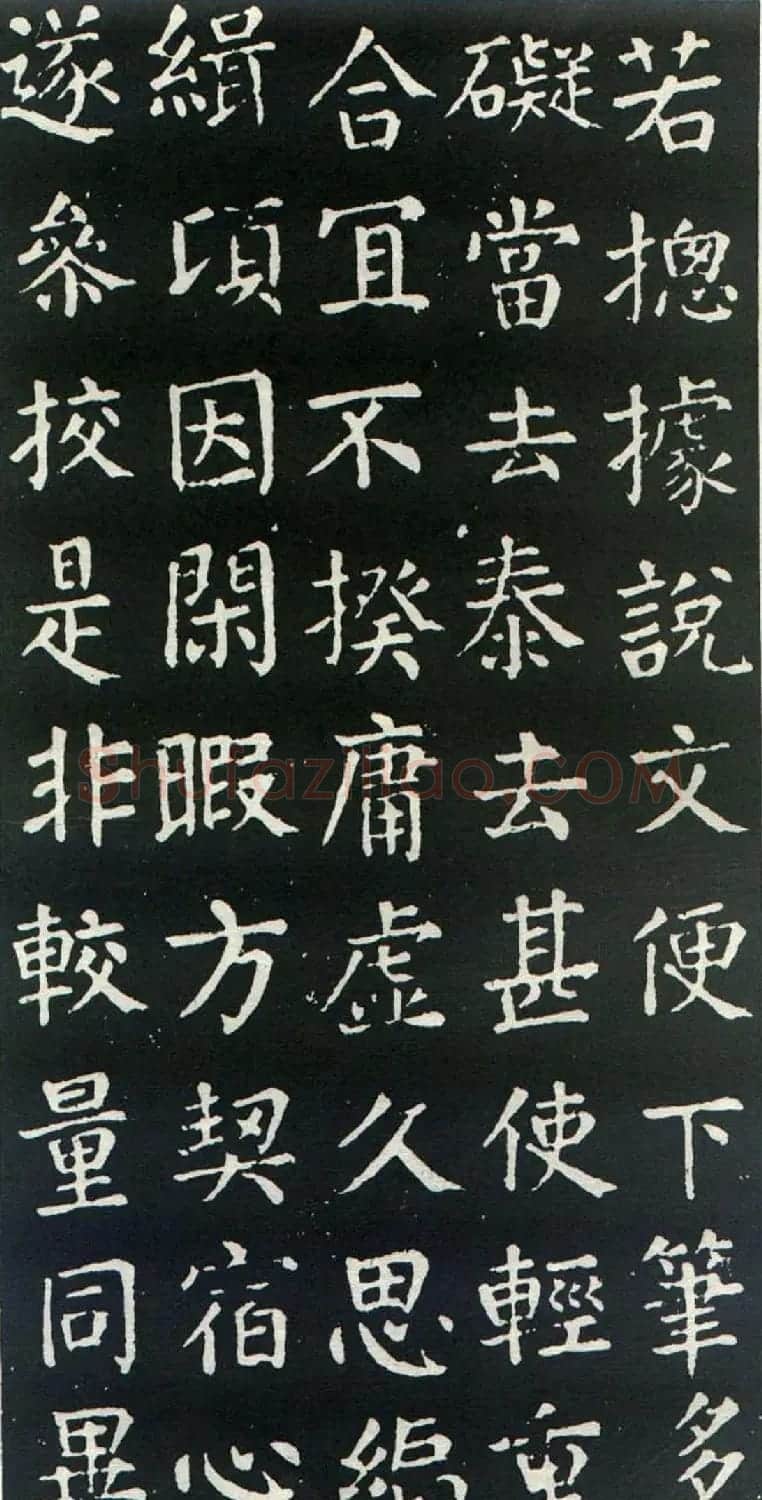 若揔據說文便下筆多
礙當去泰去甚使輕重
合宜不揆庸虛久思編
緝頃因閑暇方契宿心
遂參挍是非較量同異
Shufaziliao.COM